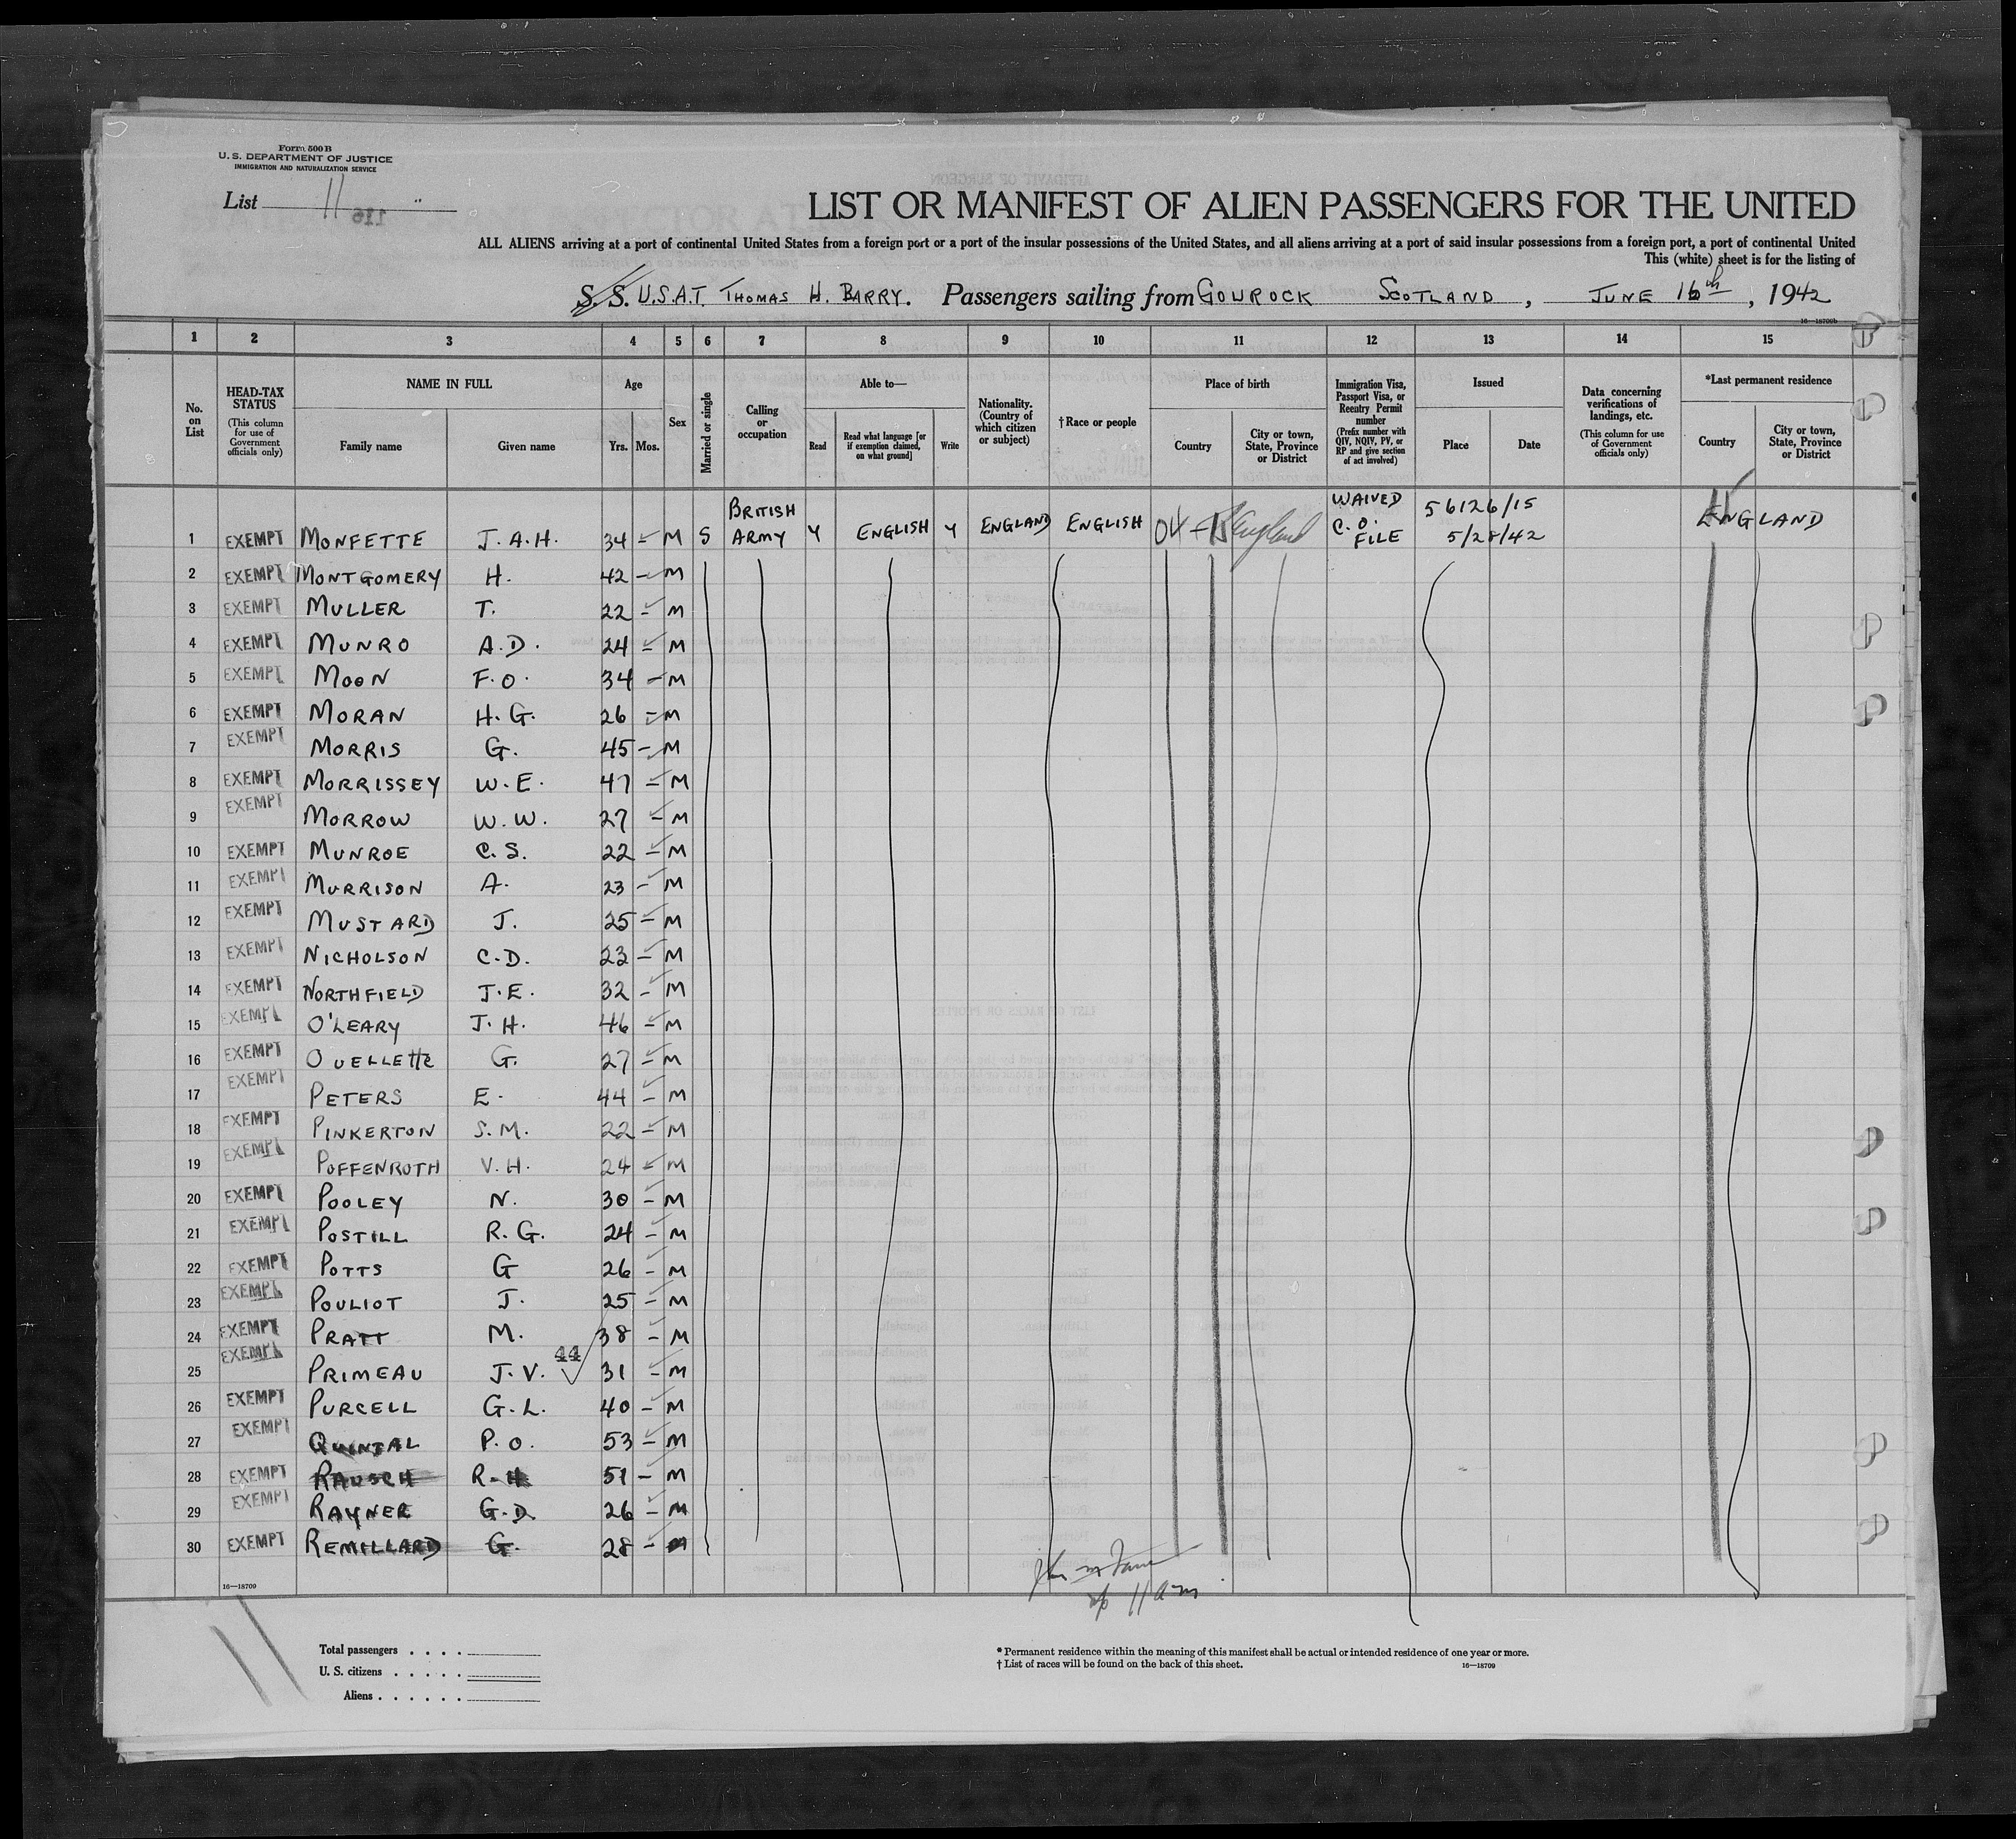 Form 500 B
U. S. DEPARTMENT OF JUSTICE
IMMIGRATION AND NATURALIZATION SERVICE
List 11
LIST OR MANIFEST OF ALIEN PASSENGERS FOR THE UNITED
ALL ALIENS arriving at a port of continental United States from a foreign port or a port of the insular possessions of the United States, and all aliens arriving at a port of said insular possessions from a foreign port, a port of continental United
This (white) sheet is for the listing of
S. S. U.S.A.T. THOMAS H. BARRY. Passengers sailing from GOUROCK SCOTLAND, JUNE 16th, 1942
16—18709b
1 2 3 4 5 6 7 8 9 10 11 12 13 14 15
No. on List
HEAD-TAX STATUS (This column for use of Government officials only)
NAME IN FULL
Family name Given name
Age
Yrs. Mos.
Sex
Married or single
Calling or occupation
Able to—
Read
Read what language [or if exemption claimed, on what ground]
Write
Nationality. (Country of which citizen or subject)
† Race or people
Place of birth
Country
City or town, State, Province or District
Immigration Visa, Passport Visa, or Reentry Permit number (Prefix number with QIV, NQIV, PV, or RP and give section of act involved)
Issued
Place Date
Data concerning verifications of landings, etc. (This column for use of Government officials only)
*Last permanent residence
Country
City or town, State, Province or District
1 EXEMPT MONFETTE J.A.H. 34 – M S BRITISH ARMY Y ENGLISH Y ENGLAND ENGLISH England WAIVED C.O. FILE 56126/15 5/28/42 ENGLAND
2 EXEMPT MONTGOMERY H. 42 – M
3 EXEMPT MULLER T. 22 – M
4 EXEMPT MUNRO A.D. 24 – M
5 EXEMPT MOON F.O. 34 – M
6 EXEMPT MORAN H.G. 26 – M
7 EXEMPT MORRIS G. 45 – M
8 EXEMPT MORRISSEY W.E. 47 – M
9 EXEMPT MORROW W.W. 27 – M
10 EXEMPT MUNROE C.S. 22 – M
11 EXEMPT MURRISON A. 23 – M
12 EXEMPT MUSTARD J. 25 – M
13 EXEMPT NICHOLSON C.D. 23 – M
14 EXEMPT NORTHFIELD J.E. 32 – M
15 EXEMPT O'LEARY J.H. 46 – M
16 EXEMPT OUELLETTE G. 27 – M
17 EXEMPT PETERS E. 44 – M
18 EXEMPT PINKERTON S.M. 22 – M
19 EXEMPT POFFENROTH V.H. 24 – M
20 EXEMPT POOLEY N. 30 – M
21 EXEMPT POSTILL R.G. 24 – M
22 EXEMPT POTTS G 26 – M
23 EXEMPT POULIOT J. 25 – M
24 EXEMPT PRATT M. 38 – M
44
25 EXEMPT PRIMEAU J.V. 31 – M
26 EXEMPT PURCELL G.L. 40 – M
27 EXEMPT QUINTAL P.O. 53 – M
28 EXEMPT RAUSCH R.H 51 – M
29 EXEMPT RAYNER G.D. 26 – M
30 EXEMPT REMILLARD G. 28 – M
11 am
16—18709
11
Total passengers
U. S. citizens
Aliens
* Permanent residence within the meaning of this manifest shall be actual or intended residence of one year or more.
† List of races will be found on the back of this sheet.
16—18709